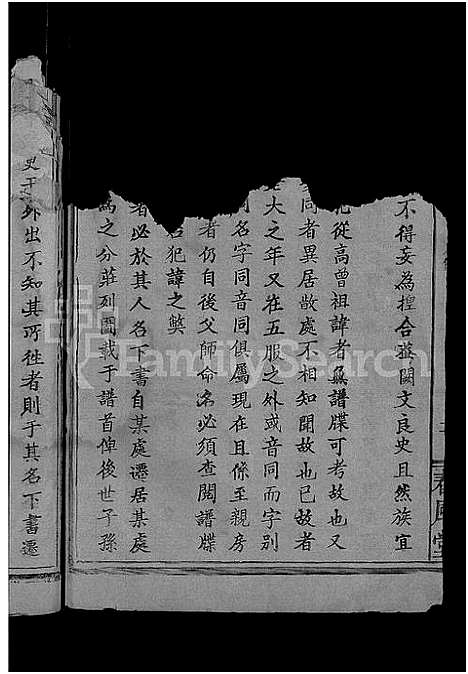 不得妄為擅合蓋闕文良史且然族宜
犯從高曾祖諱者無譜牒可考故也又
同者異居散處不相知聞故也已故者
大之年又在五服之外或音同而字別
同名字同音同俱屬現在且係至親房
者仍自後父師命名必須查閱譜牒
犯諱之弊
者必於其人名下書自某處遷居某處
為之分莊列圖載于譜首俾後世子孫
外出不知其所徃者則于其名下書遷
FamilySearch